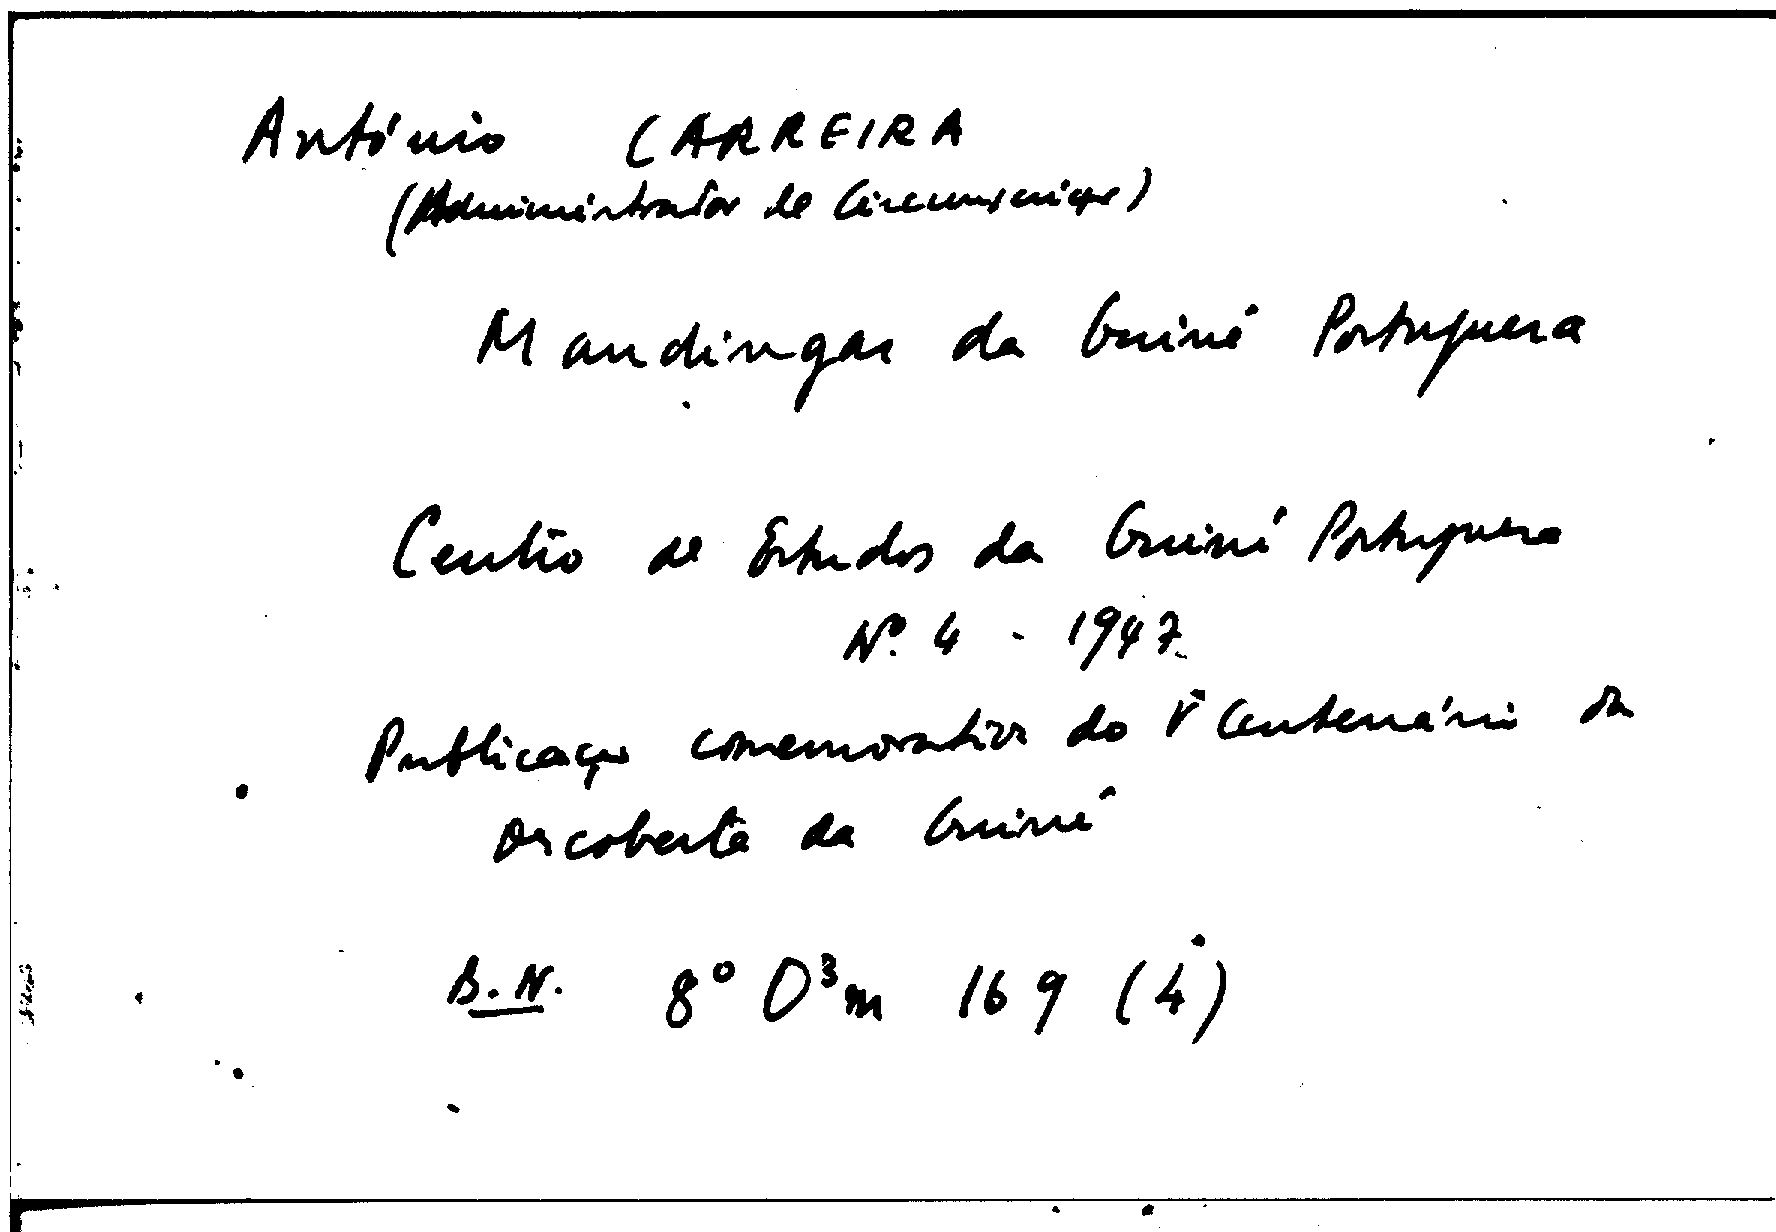 António CARREIRA
(Administrador de Circunscrição)
Mandingas da Guiné Portuguesa
Centro de Estudos da Guiné Portuguesa
Nº. 4 - 1947
Publicação comemorativa do Vº Centenário da
descoberta da Guiné
B.N. 8° O³m 169 (4)